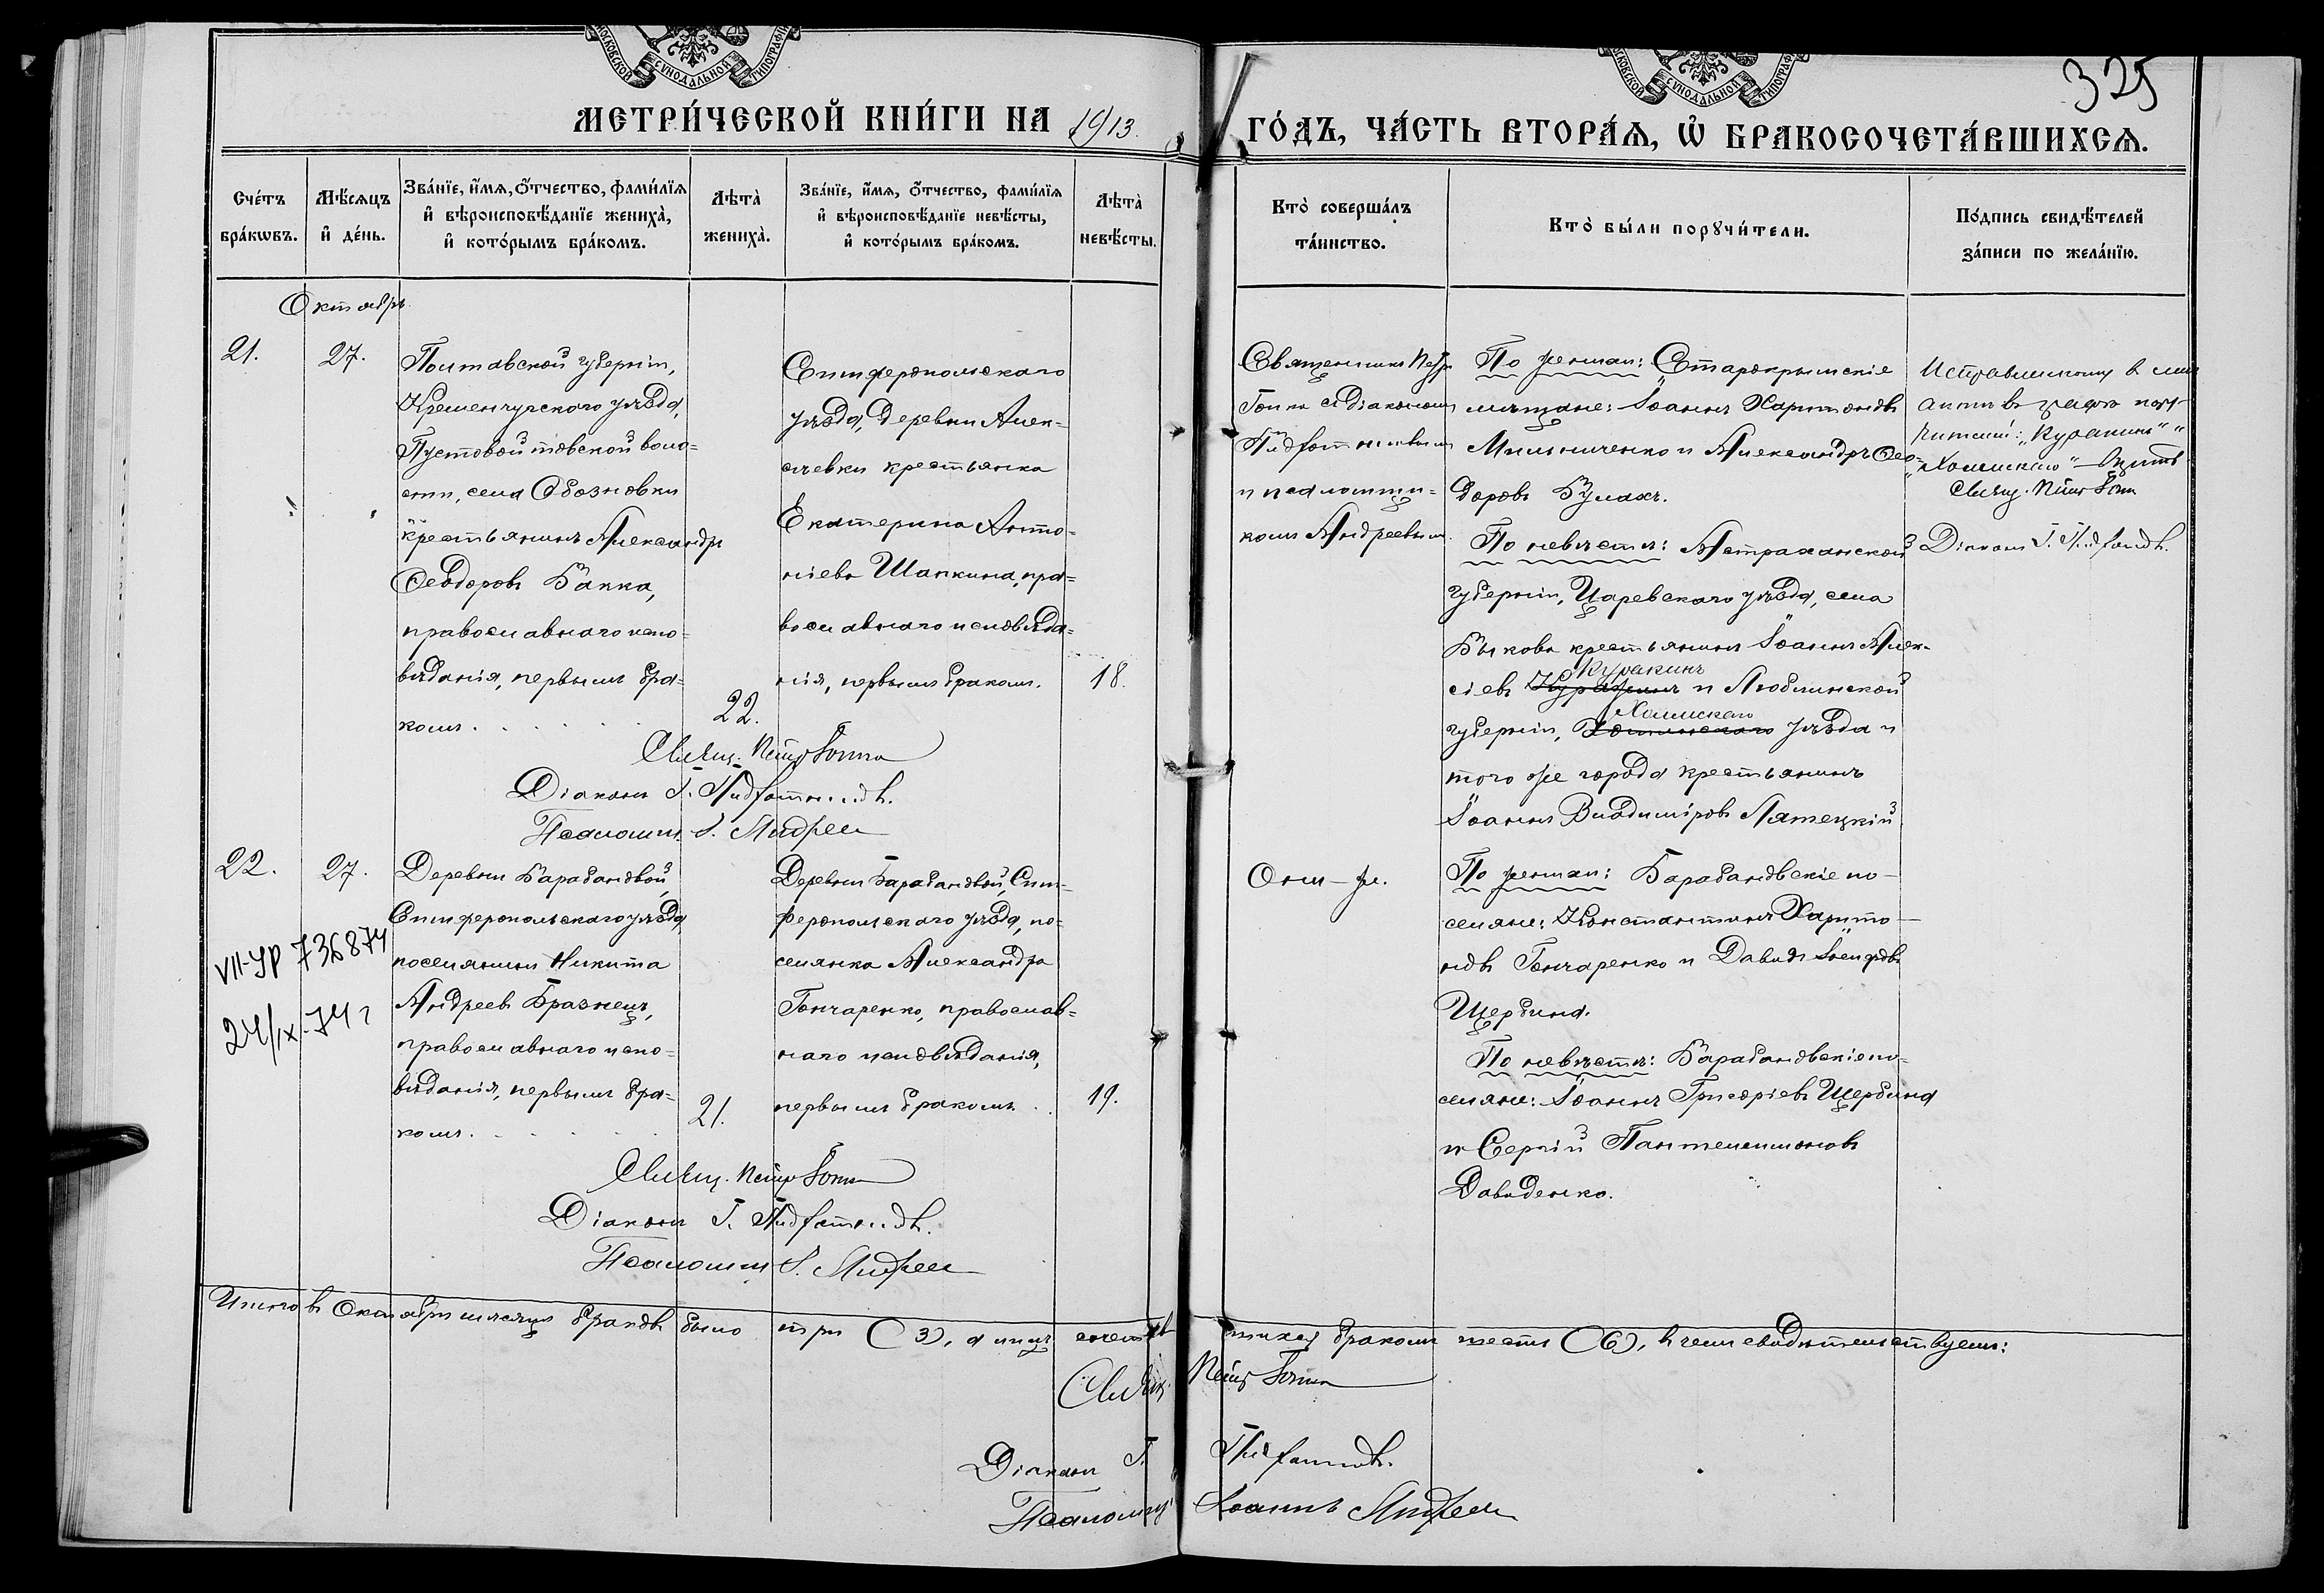 МОСКОВСКОЙ СУНОДАЛЬНОЙ ТИПОГРАФІИ
МОСКОВСКОЙ СУНОДАЛЬНОЙ ТИПОГРАФІИ
325
МЕТРИ́ЧЕСКОЙ КНИ́ГИ НА 1913.
ГО́ДЪ, ЧА́СТЬ ВТОРА́Ѧ, Ѽ БРАКОСОЧЕТА́ВШИХСѦ.
Сче́тъ
бра́кѡвъ.
Мѣ́сяцъ
и҆ де́нь.
Зва́нїе, и҆́мѧ, ѻ҆́тчество, фами́лїѧ
и҆ вѣроисповѣ́данїе жениха̀,
и҆ кото́рымъ бра́комъ.
Лѣта̀
жениха̀.
Зва́нїе, и҆́мѧ, ѻ҆́тчество, фами́лїѧ
и҆ вѣроисповѣ́данїе невѣ́сты,
и҆ кото́рымъ бра́комъ.
Лѣта̀
невѣ́сты.
Кто̀ соверша́лъ
та́инство.
Кто̀ бы́ли порꙋчи́тели.
По́дпись свидѣ́телей
за́писи по жела́нїю.
Октябрь
21.
27.
Полтавской губерніи,
Кременчугскаго уѣзда,
Пустовойтовской воло-
сти, села Обозновки
крестьянинъ Александръ
Ѳеодоровъ Бакка,
православнаго испо-
вѣданія, первымъ бра-
комъ.
22.
Симферопольскаго
уѣзда, деревни Алек-
сѣевки крестьянка
Екатерина Анто-
ніева Шапкина, пра-
вославнаго исповѣда-
нія, первымъ бракомъ.
18.
Священникъ Петръ
съ діакономъ
и псаломщи-
комъ Андреевымъ.
По женихѣ: Старокрымскіе
мѣщане: Іоаннъ Харитоновъ
Мельниченко и Александръ Ѳео-
доровъ Булахъ.
По невѣстѣ: Астраханской
губерніи, Царевскаго уѣзда, села
Быкова крестьянинъ Іоаннъ Алек-
Куракинъ
сіевъ и Люблинской
Холмскаго
губерніи, уѣзда и
того же города крестьянинъ
Іоаннъ Владиміровъ Лятецкій.
Исправленному в сем
актѣ въ графѣ пору-
чителей: „Куракинъ" и
„Холмскаго" — вѣрить
Свящ. Петръ
Діаконъ
Свящ. Петръ
Діаконъ
Псаломщ. І. Андреев
22.
27.
Деревни Барабановой,
Симферопольскаго уѣзда,
поселянинъ Никита
Андреевъ Бразнецъ,
православнаго испо-
вѣданія, первымъ бра-
комъ.
21.
Деревни Барабановой, Сим-
феропольскаго уѣзда, по-
селянка Александра
Гончаренко, православ-
наго исповѣданія,
первымъ бракомъ.
19.
Они-же.
По женихѣ: Барабановскіе по-
селяне: Константинъ Харито-
новъ Гончаренко и Давидъ Іосифовъ
Щербина.
По невѣстѣ: Барабановскіе по-
селяне: Іоаннъ Григоріевъ Щербина
и Сергій Пантелеимоновъ
Давиденко.
VII-УР 736874
24/IX-74 г
Свящ. Петръ
Діаконъ
Псаломщ. І. Андреев
Итого въ Октябрѣ мѣсяцѣ браковъ было три (3), а лицъ сочетавшихся бракомъ шесть (6), въ чемъ свидѣтельствуемъ:
Свящ. Петръ
Діаконъ
Псаломщ. Іоаннъ Андреев